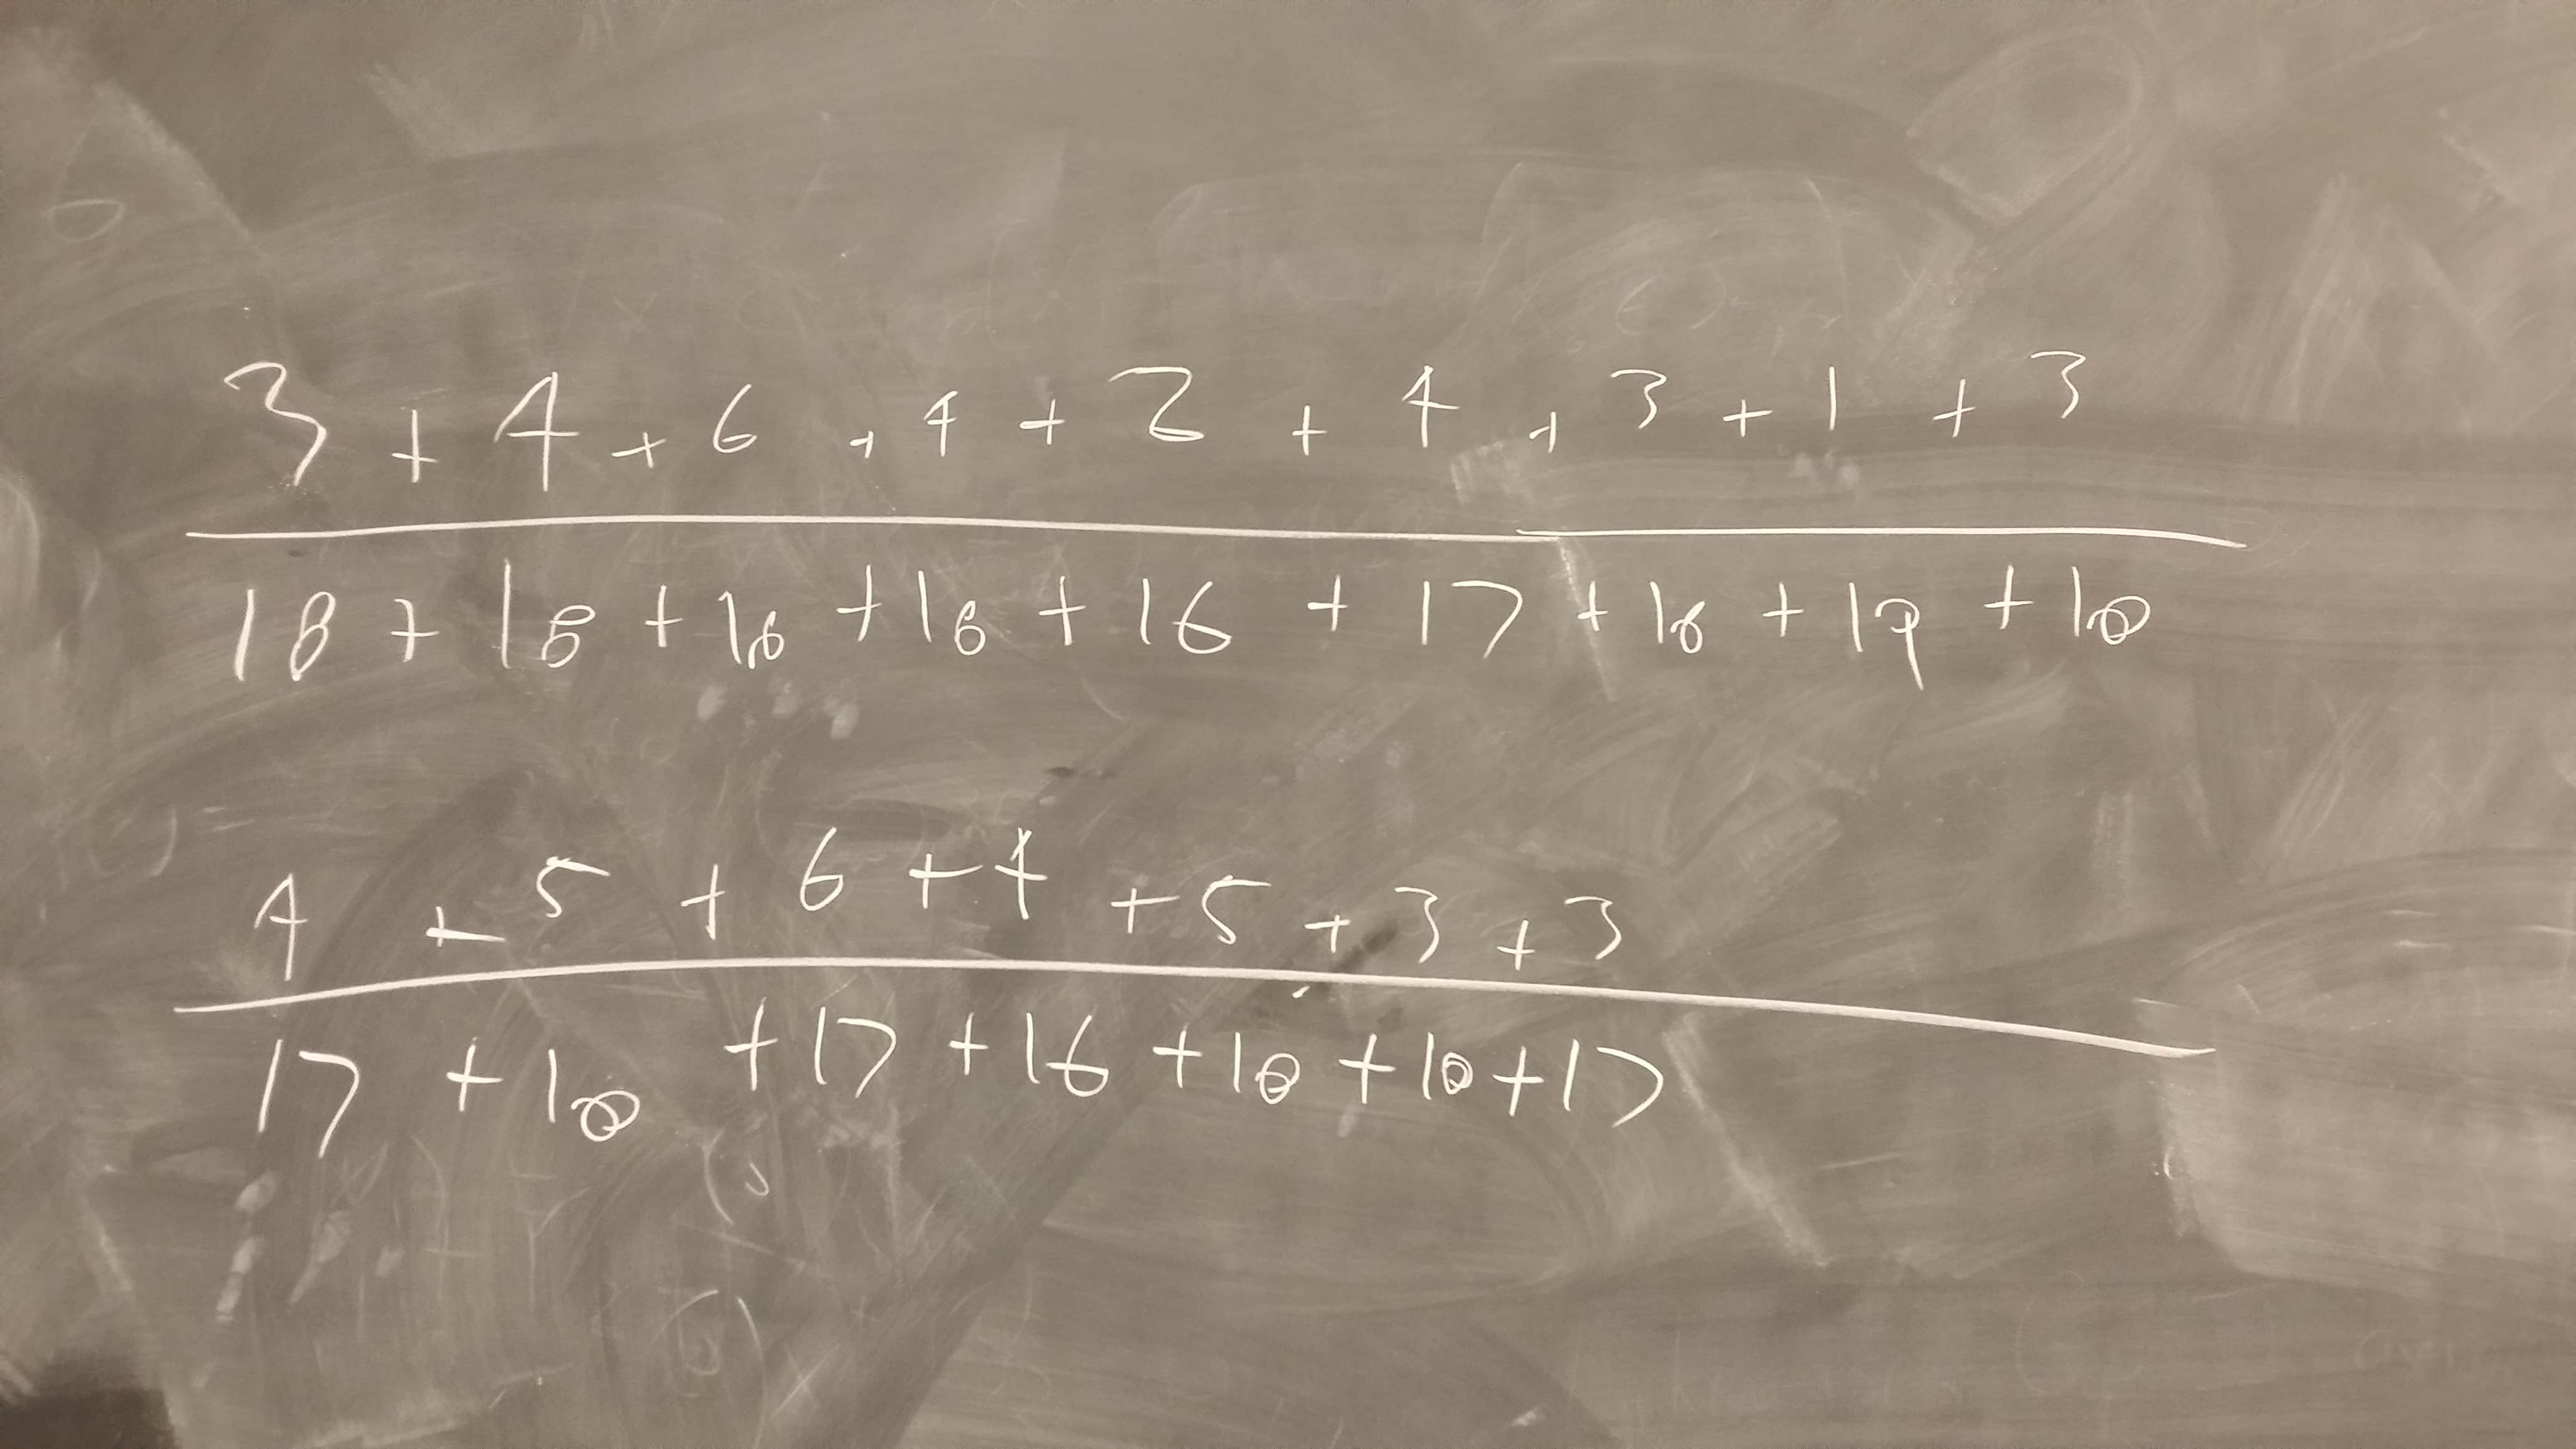 3 + 4 + 6 + 4 + 2 + 4 + 3 + 1 + 3
18 + 18 + 18 + 18 + 16 + 17 + 18 + 19 + 18
4 + 5 + 6 + 4 + 5 + 3 + 3
17 + 18 + 17 + 16 + 18 + 18 + 17